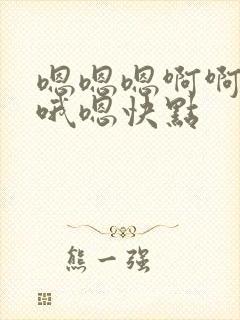 嗯嗯嗯啊啊
哦嗯快點
熊一强